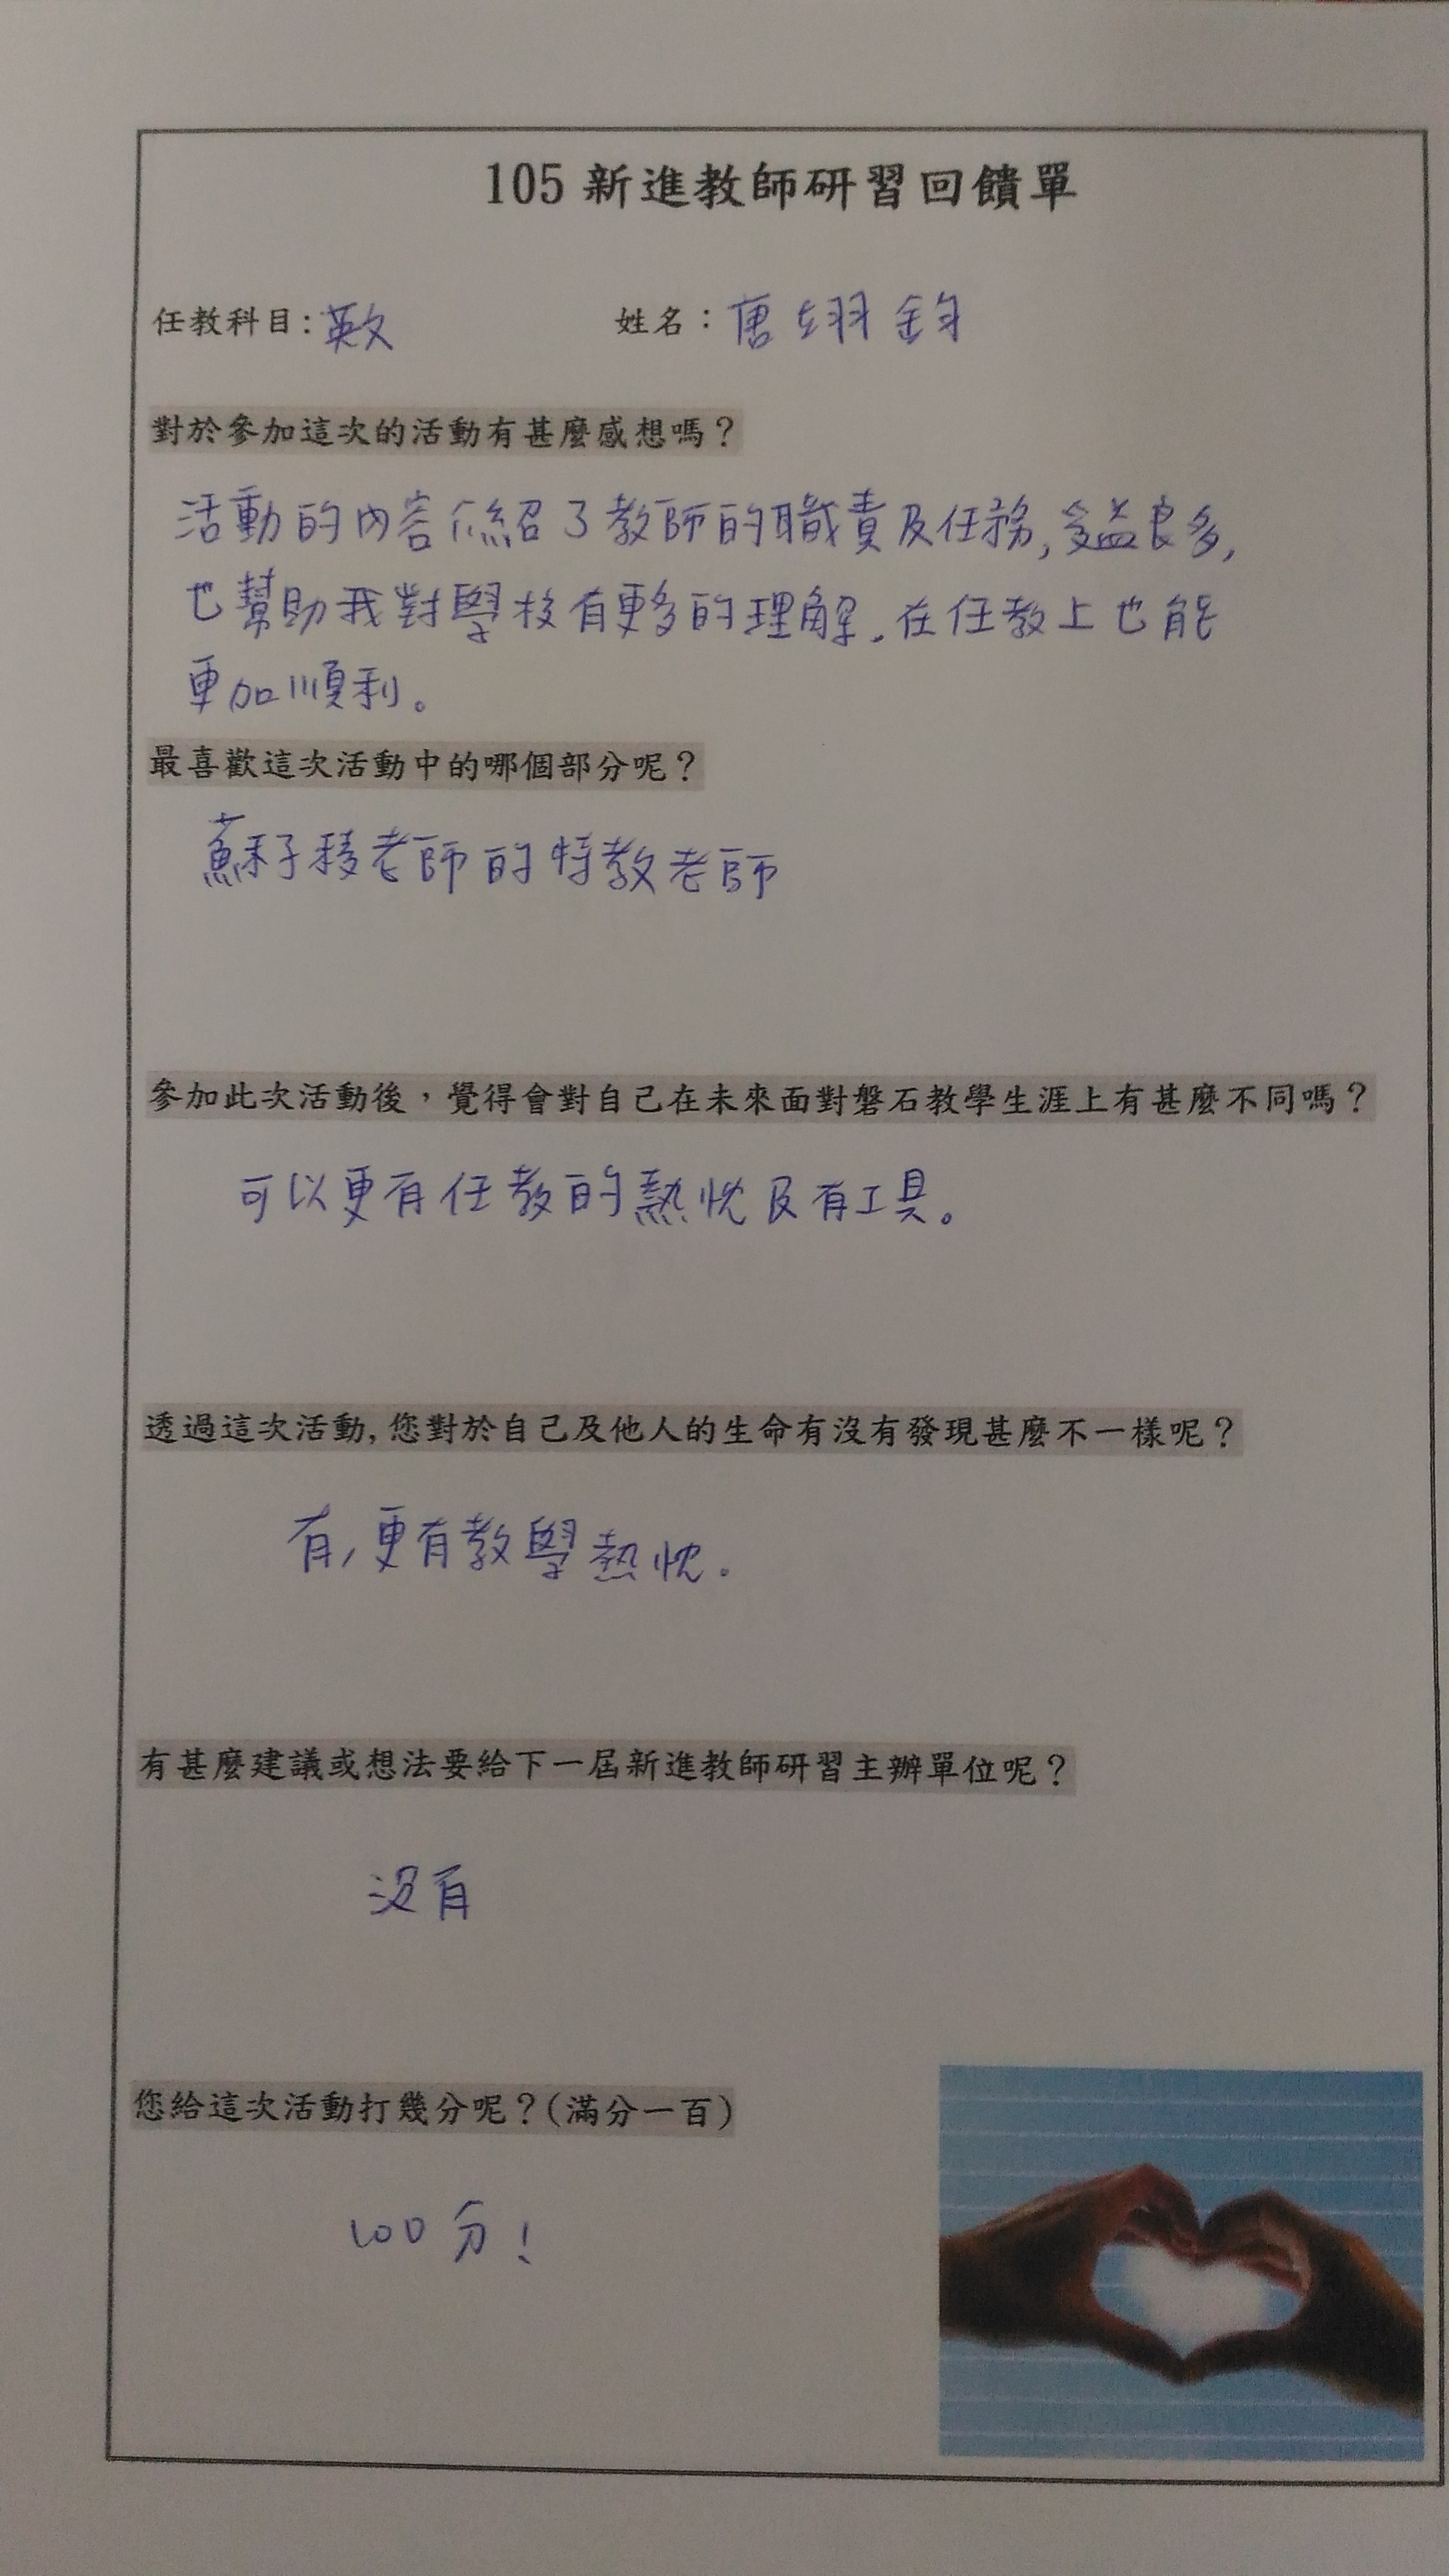 105 新進教師研習回饋單
任教科目：英文 姓名：唐翊鈞
對於參加這次的活動有甚麼感想嗎？
活動的內容介紹了教師的職責及任務,受益良多,
也幫助我對學校有更多的理解.在任教上也能
更加順利。
最喜歡這次活動中的哪個部分呢？
蘇子稜老師的特教老師
參加此次活動後，覺得會對自己在未來面對磐石教學生涯上有甚麼不同嗎？
可以更有任教的熱忱及有工具。
透過這次活動,您對於自己及他人的生命有沒有發現甚麼不一樣呢？
有,更有教學熱忱.
有甚麼建議或想法要給下一屆新進教師研習主辦單位呢？
沒有
您給這次活動打幾分呢？(滿分一百)
100分!